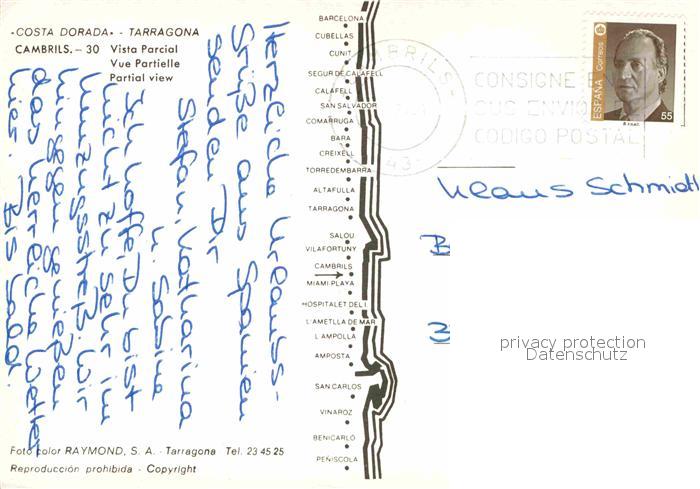 -COSTA DORADA- - TARRAGONA
CAMBRILS. - 30 Vista Parcial
Vue Partielle
Partial view
Herzliche Urlaubs-
Grüße aus Spanien
senden Dir
Stefan, Katharina
u. Sabine
Ich hoffe, Du bist
nicht zu sehr im
Umzugsstreß. Wir
hingegen genießen
das herrliche Wetter
hier. Bis bald.
Foto color RAYMOND, S. A. - Tarragona Tel. 23 45 25
Reproducción prohibida - Copyright
BARCELONA
CUBELLAS
CUNIT
SEGUR DE CALAFELL
CALAFELL
SAN SALVADOR
COMARRUGA
BARA
CREIXELL
TORREDEMBARRA
ALTAFULLA
TARRAGONA
SALOU
VILAFORTUNY
CAMBRILS
MIAMI-PLAYA
HOSPITALET DEL I.
L'AMETLLA DE MAR
L'AMPOLLA
AMPOSTA
SAN CARLOS
VINAROZ
BENICARLO
PEÑISCOLA
CAMBRILS
43
CONSIGNE EN
SUS ENVIO
CODIGO POSTAL
ESPAÑA Correos
55
Klaus Schmidt
B
3
privacy protection
Datenschutz